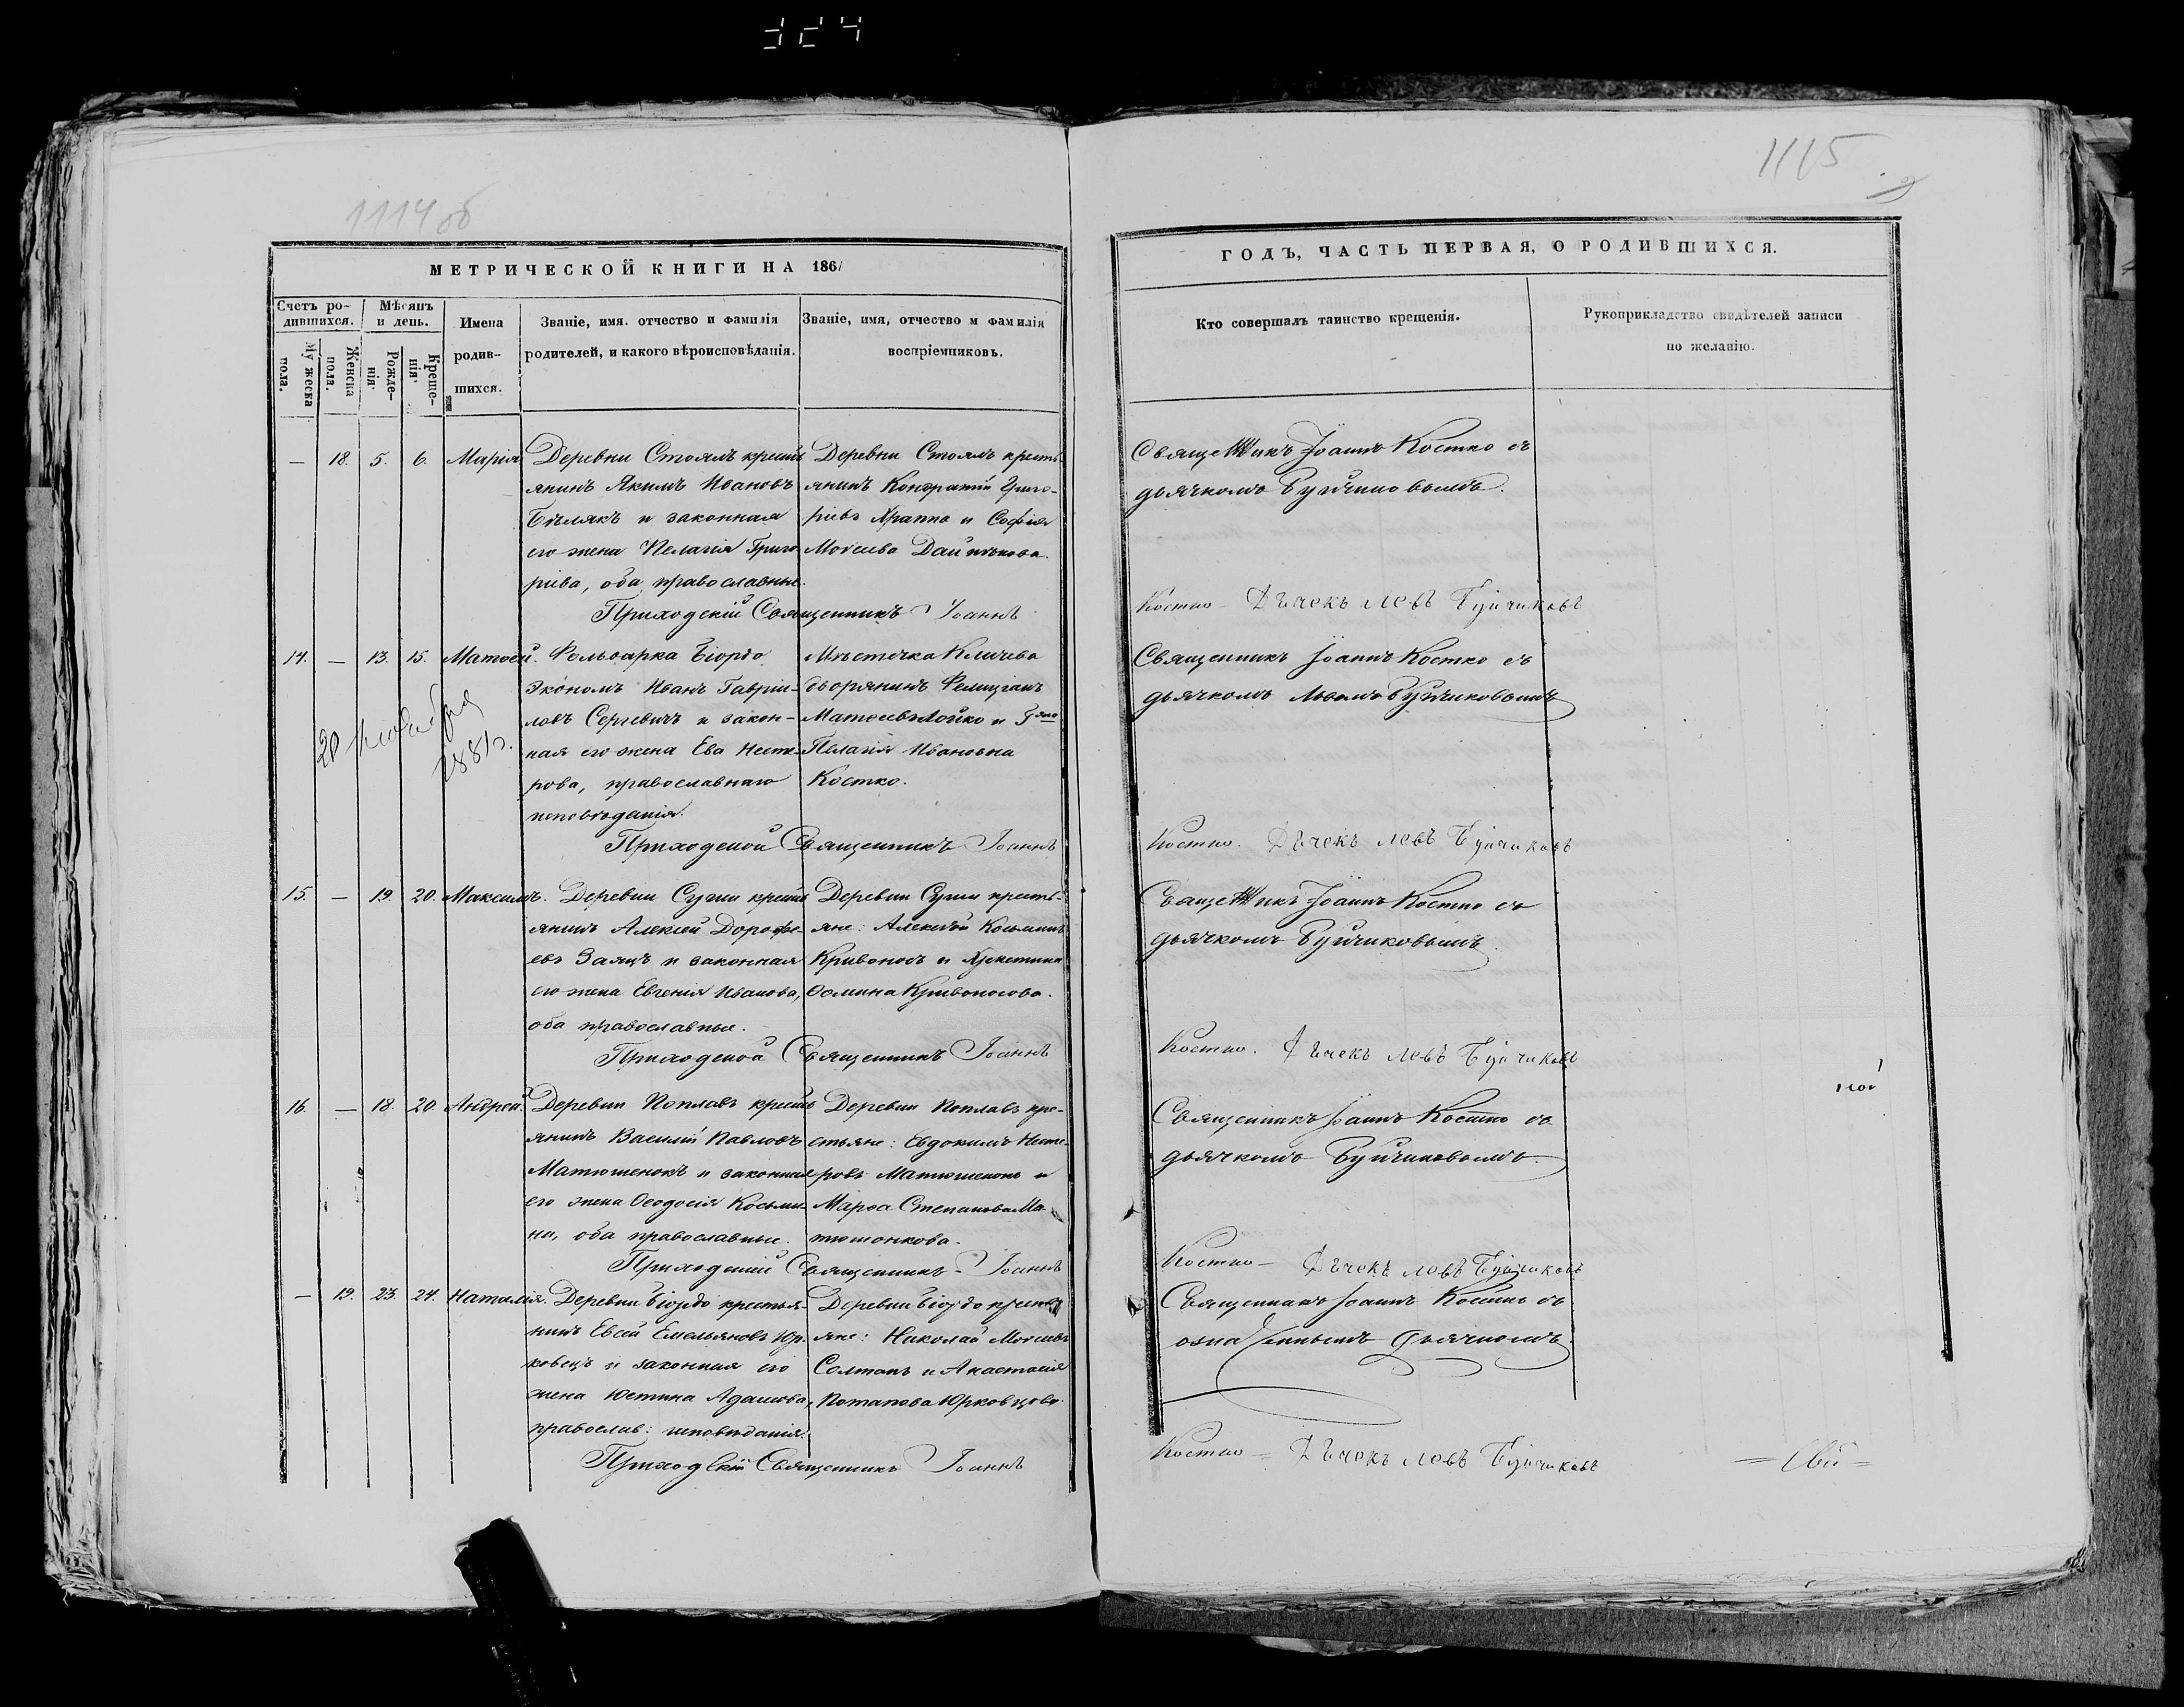 1114 об
1115
МЕТРИЧЕСКОЙ КНИГИ НА 1861
ГОДЪ, ЧАСТЬ ПЕРВАЯ, О РОДИВШИХСЯ.
Счетъ ро-
дившихся.
Мужеска
пола.
Женска
пола.
Мѣсяцъ
и день.
Рожде-
нія.
Креще-
нія.
Имена
родив-
шихся.
Званіе, имя. отчество и фамилія
родителей, и какого вѣроисповѣданія.
Званіе, имя, отчество и фамилія
воспріемниковъ.
Кто совершалъ таинство крещенія.
Рукоприкладство свидѣтелей записи
по желанію.
— 18. 5. 6. Марія
Деревни Стоялъ кресть
янинъ Якимъ Ивановъ
Бѣлякъ и законная
его жена Пелагія Григо
ріева, оба православные.
Деревни Стоялъ кресть-
янинъ Кондратій Григо-
ріевъ Храппо и Софія
Моисеева
Священникъ Іоаннъ Костко съ
дьячкомъ Буйчиковымъ.
Приходскій Священникъ Іоаннъ
Костко – Дьчекъ левъ Буйчиковъ
14. — 13. 15. Матѳей.
20 ноября
1881 г.
Фольварка Біордо
Экономъ Иванъ Гавріи-
ловъ Сергевичъ и закон-
ная его жена Ева Несте-
рова, православнаго
исповѣданія.
Мѣстечка Кличева
дворянинъ Фелиціанъ
Матѳеевъ Лойко и
Пелагія Ивановна
Костко.
Священникъ Іоаннъ Костко съ
дьячкомъ Львомъ Буйчиковымъ
Приходской Священникъ Іоаннъ
Костко. Дьчекъ левъ Буйчиковъ
15. — 19. 20. Максимъ.
Деревни Суши кресть
янинъ Алексей Дорофе-
евъ Заяцъ и законная
его жена Евгенія Иванова,
оба православные.
Деревни Суши кресть-
яне: Алексѣй Косьминъ
Кривоносъ и Христина
Ѳомина Кривоносова.
Священникъ Іоаннъ Костко съ
дьячкомъ Буйчиковымъ.
Приходской Священникъ Іоаннъ
Костко. Дьчекъ левъ Буйчиковъ
16. — 18. 20. Андрей.
Деревни Поплавъ кресть
янинъ Василій Павловъ
Матюшенокъ и законная
его жена Ѳеодосія Косьми-
на, оба православные.
Деревни Поплавъ кре-
стьяне: Евдокимъ Несте-
ровъ Матюшенокъ и
Марѳа Степанова Ма-
тюшонкова.
Священникъ Іоаннъ Костко съ
дьячкомъ Буйчиковымъ.
Приходскій Священникъ – Іоаннъ
Костко – Дьчекъ левъ Буйчиковъ
— 19. 23. 24. Наталія.
Деревни Біордо крестья-
нинъ Евсей Емельяновъ Юр-
ковецъ и законная его
жена Юстина Адамова,
православ: исповѣданія.
Деревни Біордо крестья
яне: Николай Моисеевъ
Солтанъ и Анастасія
Потапова Юрковцова.
Священникъ Іоаннъ Костко съ
означеннымъ дьячкомъ.
Приходскій Священникъ Іоаннъ
Костко – Дьчекъ левъ Буйчиковъ